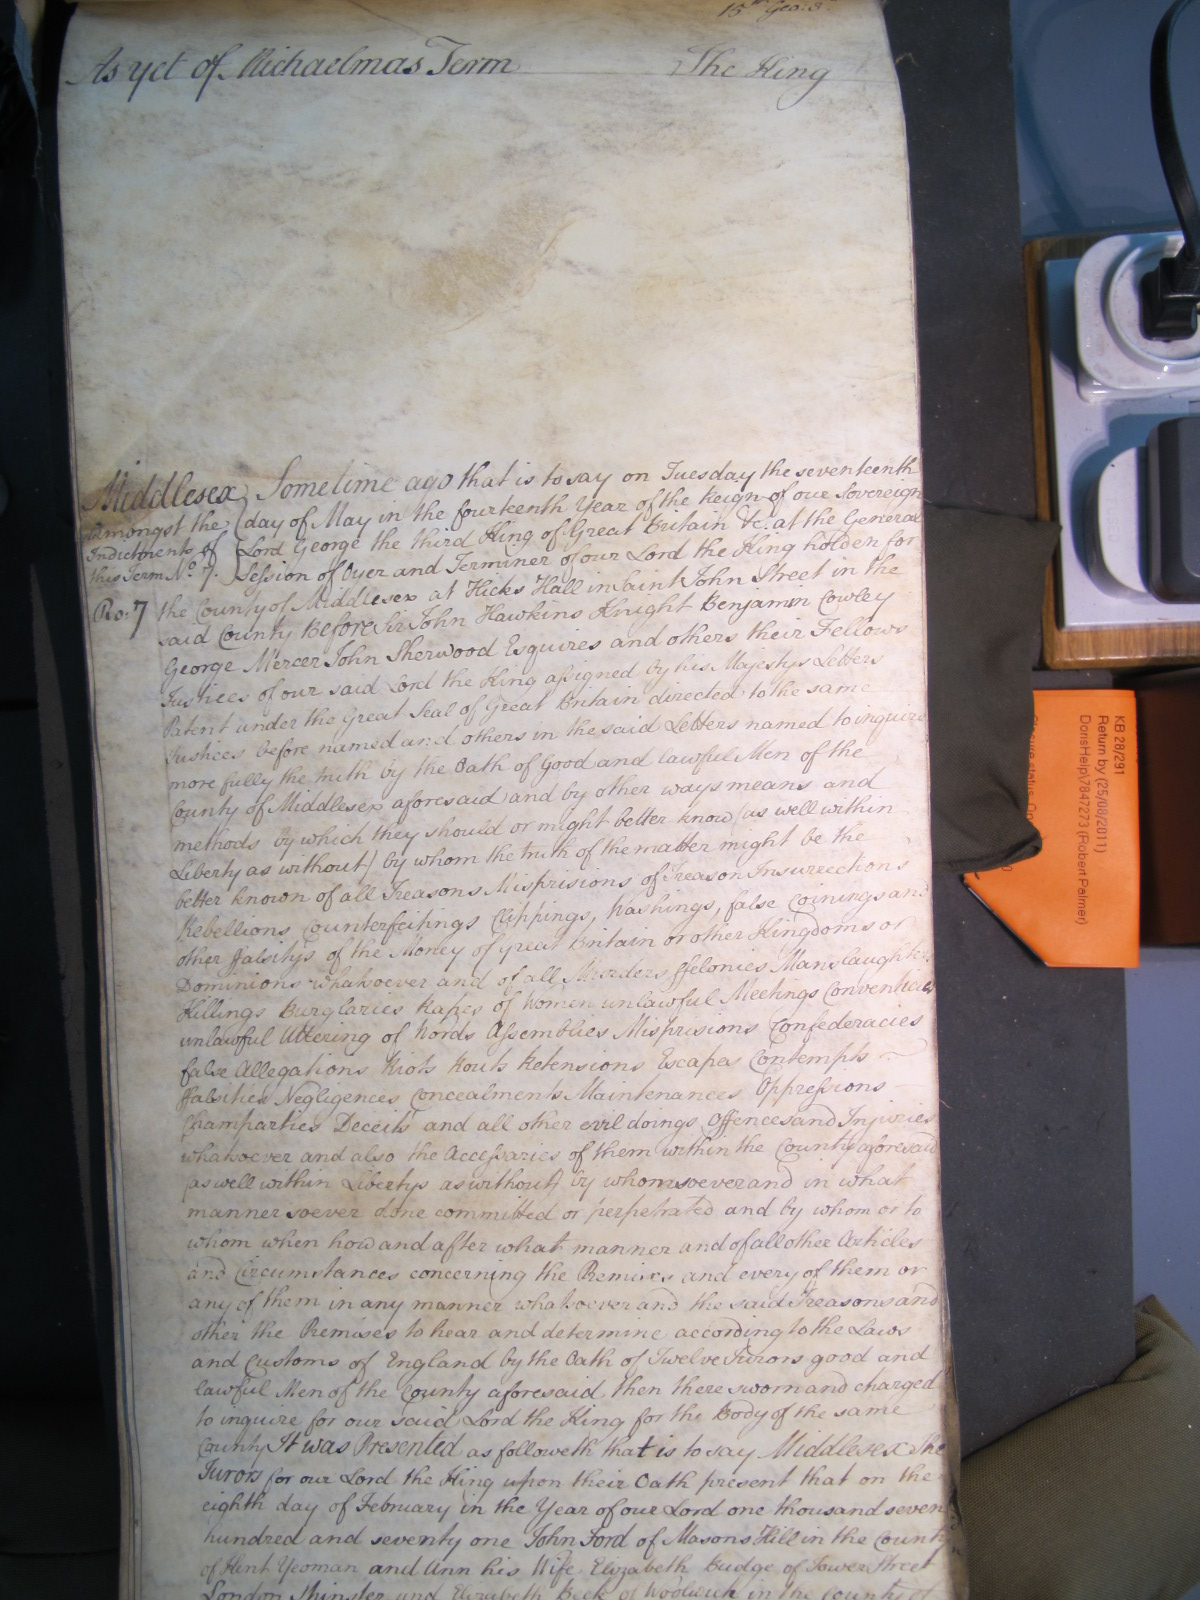 15th Geo: 3d
As yet of Michaelmas Term The King
Middlesex Sometime ago that is to say on Tuesday the seventeenth
Amongst the day of May in the fourteenth Year of the Reign of our Sovereign
Indictments of Lord George the third King of Great Britain &c. at the General
this Term No. 7. Session of Oyer and Terminer of our Lord the King holden for
Ro: 7 the County of Middlesex at Hicks Hall in Saint John Street in the
said County Before Sir John Hawkins Knight Benjamin Cowley
George Mercer John Sherwood Esquires and others their Fellows
Justices of our said Lord the King assigned by his Majestys Letters
Patent under the Great Seal of Great Britain directed to the same
Justices before named and others in the said Letters named to inquire
more fully the truth by the Oath of Good and lawful Men of the
County of Middlesex aforesaid and by other ways means and
methods by which they should or might better know (as well within
Liberty as without) by whom the truth of the matter might be the
better known of all Treasons Misprisions of Treason Insurrections
Rebellions Counterfeitings Clippings, Washings, false Coinings and
other ffalsitys of the Money of Great Britain or other Kingdoms or
Dominions whatsoever and of all Murders ffelonies Manslaughters
Killings Burglaries Rapes of Women unlawful Meetings Conventicles
unlawful Uttering of Words Assemblies Misprisions Confederacies
false Allegations Riots Routs Retensions Escapes Contempts
ffalsities Negligences Concealments Maintenances Oppressions
Champarties Deceits and all other evil doings Offences and Injuries
whatsoever and also the Accessaries of them within the County aforesaid
(as well within Libertys as without) by whomsoever and in what
manner soever done committed or perpetrated and by whom or to
whom when how and after what manner and of all other Articles
and Circumstances concerning the Premises and every of them or
any of them in any manner whatsoever and the said Treasons and
other the Premises to hear and determine according to the Laws
and Customs of England by the Oath of Twelve Jurors good and
lawful Men of the County aforesaid then there sworn and charged
to inquire for our said Lord the King for the Body of the same
County It was Presented as followeth that is to say Middlesex The
Jurors for our Lord the King upon their Oath present that on the
eighth day of February in the Year of our Lord one thousand seven
hundred and seventy one John Ford of Masons Hill in the County
of Kent Yeoman and Ann his Wife Elizabeth Budge of Tower Street
London Spinster and Elizabeth Beck of Woolwich in the County of
KB 28/291
Return by (25/08/2011)
DorisHelp\7847273 (Robert Palmer)